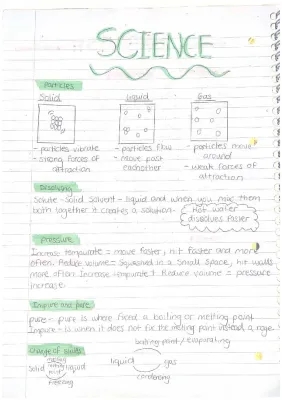 SCIENCE
Particles
Solid Liquid Gas
- particles vibrate
- strong forces of
attraction
- particles flow
- move past
eachother
- particles move
around
- weak forces of
attraction
Dissolving
Solute - Solid Solvent - liquid and when you mix them
both together it creates a solution.
Hot water
dissolves faster
Pressure
Increase = move faster, hit faster and more
often. Reduce volume = Squashed in a Small space, hit walls
more often Increase Reduce volume = pressure
increase.
Impure and pure
pure - pure is where fixed a boiling or melting point
Impure - is when it does not fix the melting point instead a
boiling point / evaporating
Change of states
Solid liquid
freezing
liquid gas
condensing